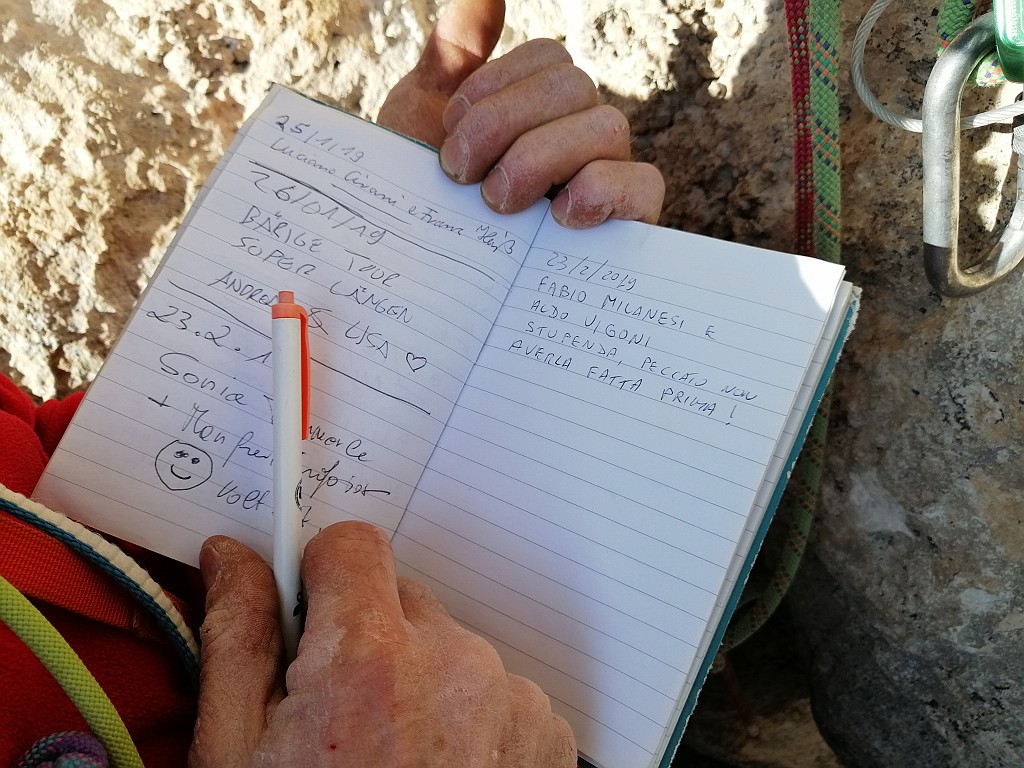 25/1/19
Luciano e Franca
26/01/19
BÄRIGE TOUR
SUPER LÄNGEN
ANDREA & LISA ♡
23.2.1
Sonia
+ Manfred
23/2/2019
FABIO MILANESI E
ALDO VIGONI
STUPENDA, PECCATO NON
AVERLA FATTA PRIMA!